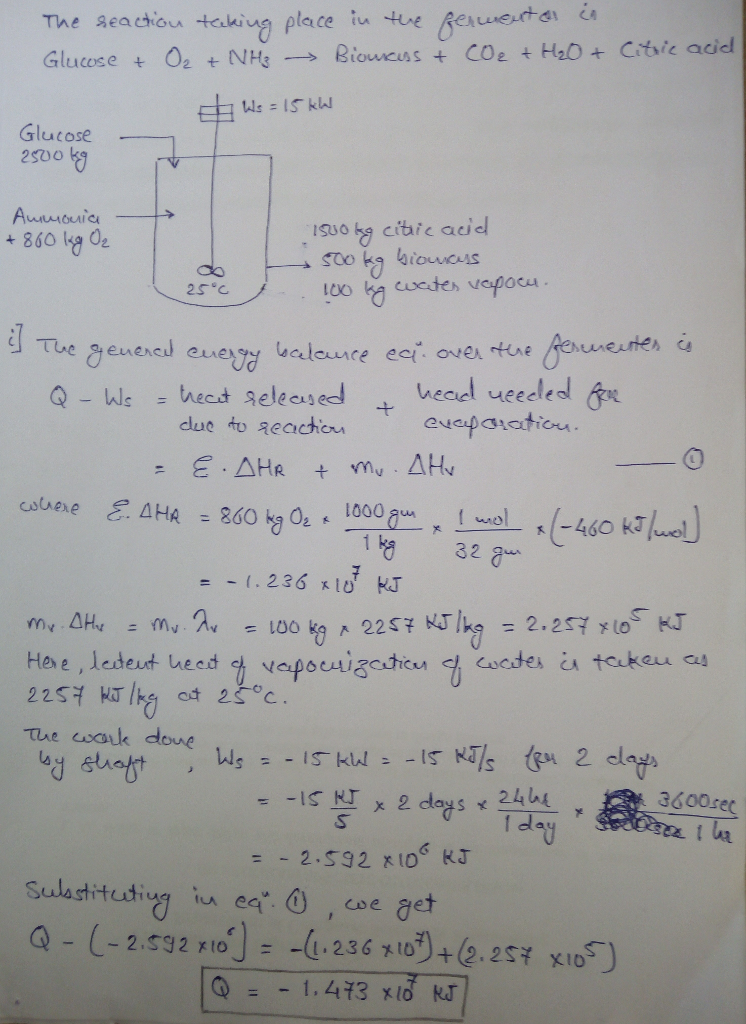 The reaction taking place in the fermentor is
Glucose + O2 + NH3 → Biomass + CO2 + H2O + Citric acid
Ws = 15 kW
Glucose
2500 kg
Ammonia
+ 860 kg O2
1500 kg citric acid
500 kg biomass
100 kg water vapour.
25°C
i] The general energy balance eqⁿ. over the fermenter is
Q - Ws = heat released due to reaction + head needed for evaporation.
= ε. ΔHR + mv. ΔHv —— ①
where ε. ΔHR = 860 kg O2 × 1000 gm / 1 kg × 1 mol / 32 gm × (-460 KJ/mol)
= -1.236 × 10^7 KJ
mv. ΔHv = mv. λv = 100 kg × 2257 KJ/kg = 2.257 × 10^5 KJ
Here, latent heat of vapourization of water is taken as
2257 KJ/kg at 25°C.
The work done by shaft, Ws = -15 KW = -15 KJ/s for 2 days
= -15 KJ/s × 2 days × 24 hr / 1 day × 3600 sec / 1 hr
= - 2.592 × 10^6 KJ
Substituting in eqⁿ. ①, we get
Q - (-2.592 × 10^6) = -(1.236 × 10^7) + (2.257 × 10^5)
Q = - 1.473 × 10^7 KJ